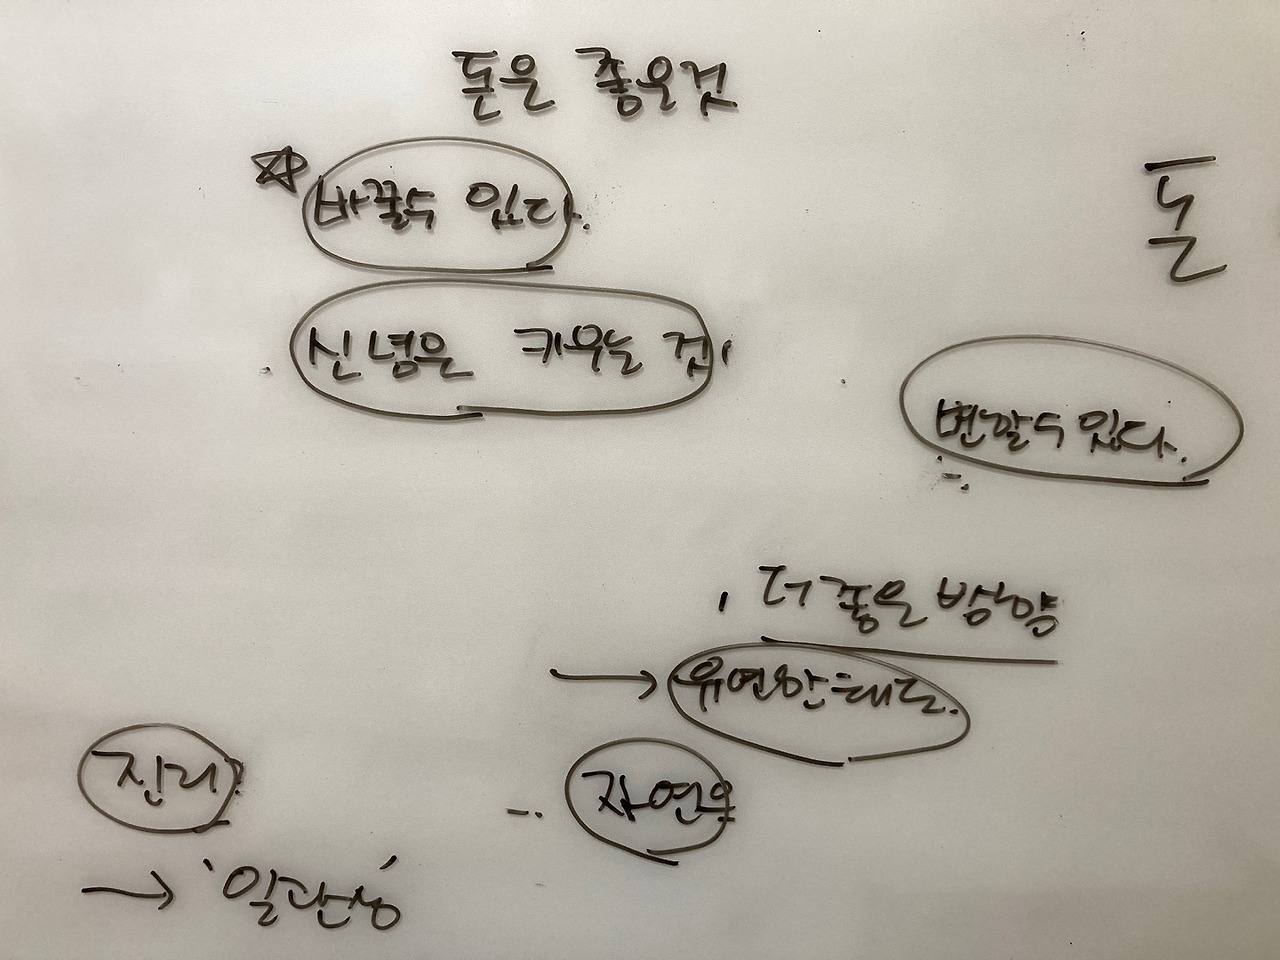 돈은 좋은것
바꿀수 있다.
돈
신념은 키우는 것
변할수 있다.
더 좋은 방향
→ 유연한 태도.
진리
자연의
→ '일관성'